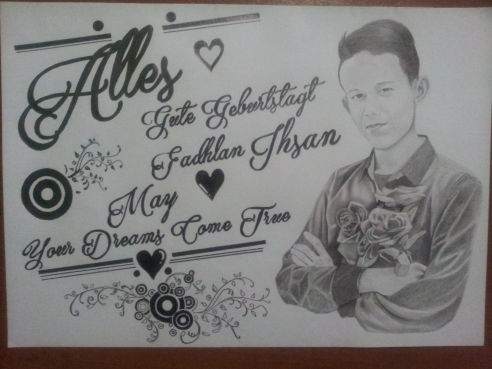 Alles
Gute Geburtstagt
Fadhlan Ihsan
May
Your Dreams Come True